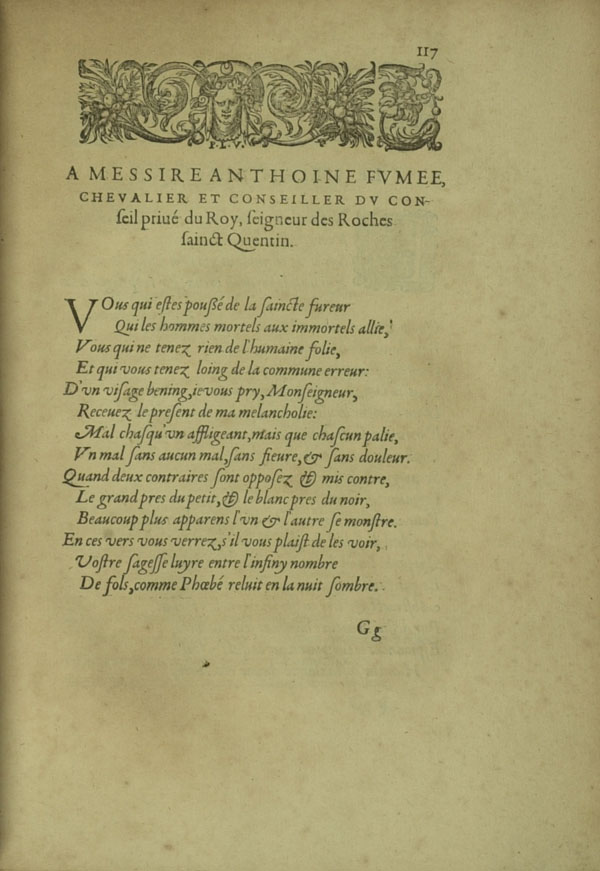 117
F.L.V.
A MESSIRE ANTHOINE FVMEE,
CHEVALIER ET CONSEILLER DV CON-
ſeil priué du Roy, ſeigneur des Roches
ſainct Quentin.
VOus qui eſtes pouſſé de la ſaincte fureur
Qui les hommes mortels aux immortels allie,
Vous qui ne tenez rien de l'humaine folie,
Et qui vous tenez loing de la commune erreur:
D'vn viſage bening, ie vous pry, Monſeigneur,
Receuez le preſent de ma melancholie:
Mal chaſqu'vn affligeant, mais que chaſcun palie,
Vn mal ſans aucun mal, ſans fieure, & ſans douleur.
Quand deux contraires ſont oppoſez & mis contre,
Le grand pres du petit, & le blanc pres du noir,
Beaucoup plus apparens l'vn & l'autre ſe monſtre.
En ces vers vous verrez, s'il vous plaiſt de les voir,
Voſtre ſageſſe luyre entre l'infiny nombre
De fols, comme Phœbé reluit en la nuit ſombre.
Gg